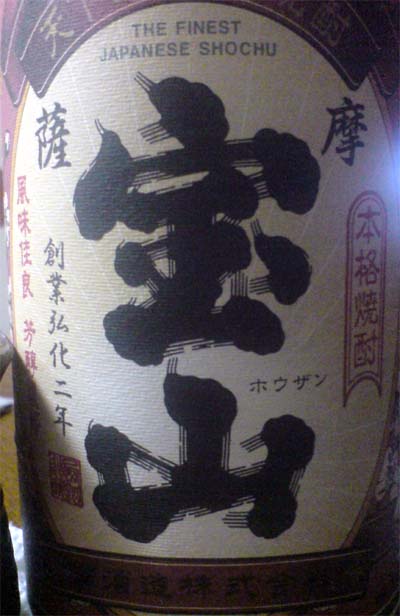 THE FINEST
JAPANESE SHOCHU
薩摩
宝山
ホウザン
本格焼酎
創業弘化二年
風味佳良 芳醇
酒造株式会社